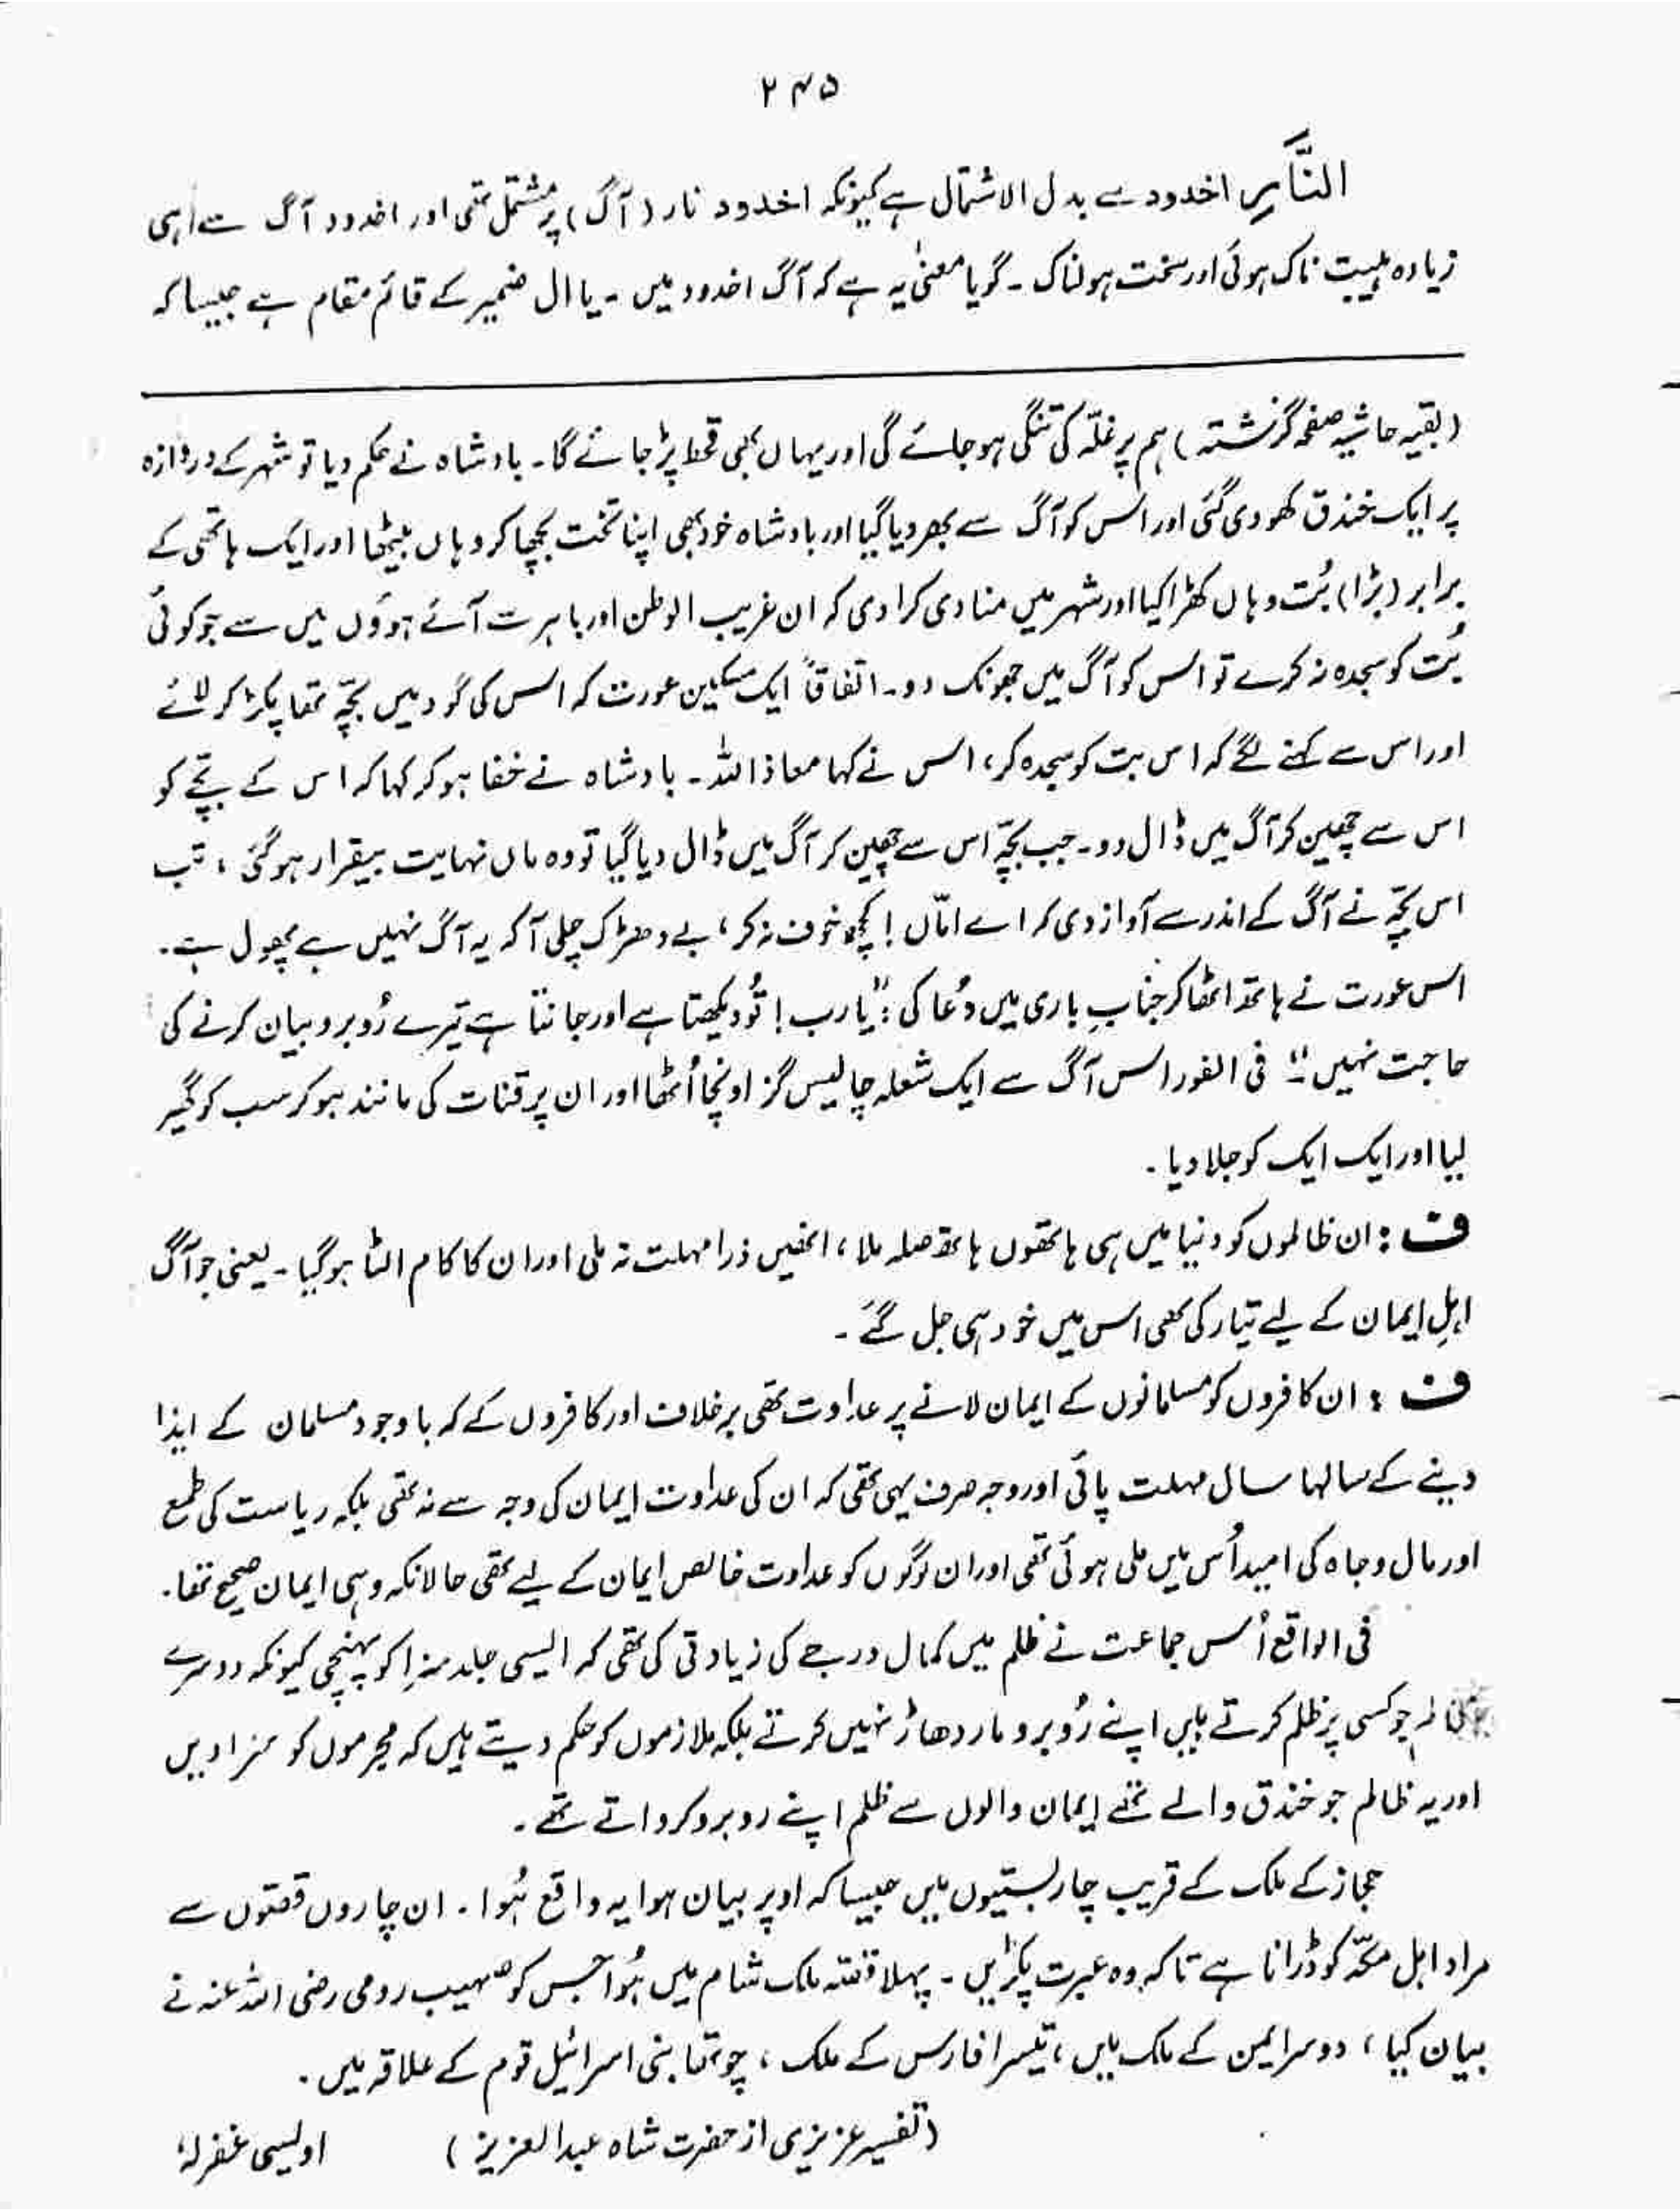 ۲۴۵
النَّارِ اخدود سے بدل الاشتمال ہے کیونکہ اخدود نار (آگ) پر مشتمل تھی اور اخدود آگ سے ہی
زیادہ ہیبت ناک ہوئی اور سخت ہولناک ۔ گویا معنیٰ یہ ہے کہ آگ اخدود میں ۔ یا ال ضمیر کے قائم مقام ہے جیسا کہ
(بقیہ حاشیہ صفحہ گزشتہ) ہم پر غلّہ کی تنگی ہوجائے گی اور یہاں بھی قحط پڑ جائے گا ۔ بادشاہ نے حکم دیا تو شہر کے دروازہ
پر ایک خندق کھودی گئی اور اس کو آگ سے بھر دیا گیا اور بادشاہ خود بھی اپنا تخت بچھا کر وہاں بیٹھا اور ایک ہاتھی کے
برابر (بڑا) بُت وہاں کھڑا کیا اور شہر میں منادی کرا دی کہ ان غریب الوطن اور باہر سے آئے ہوؤں میں سے جو کوئی
بُت کو سجدہ نہ کرے تو اس کو آگ میں جھونک دو ۔ اتفاقاً ایک مسکین عورت کہ اس کی گود میں بچّہ تھا پکڑ کر لائے
اور اس سے کہنے لگے کہ اس بت کو سجدہ کر، اس نے کہا معاذ اللہ ۔ بادشاہ نے خفا ہو کر کہا کہ اس کے بچّے کو
اس سے چھین کر آگ میں ڈال دو ۔ جب بچّہ اس سے چھین کر آگ میں ڈال دیا گیا تو وہ ماں نہایت بیقرار ہوگئی ، تب
اس بچّہ نے آگ کے اندر سے آواز دی کہ اے امّاں ! کچھ خوف نہ کر، بے دھڑک چلی آ کہ یہ آگ نہیں ہے پھول ہے ۔
اس عورت نے ہاتھ اٹھا کر جنابِ باری میں دُعا کی : "یارب ! تُو دیکھتا ہے اور جانتا ہے تیرے رُوبرو بیان کرنے کی
حاجت نہیں ۔" فی الفور اس آگ سے ایک شعلہ چالیس گز اونچا اُٹھا اور ان پر قنات کی مانند ہو کر سب کو گھیر
لیا اور ایک ایک کو جلا دیا ۔
ف : ان ظالموں کو دنیا میں ہی ہاتھوں ہاتھ صلہ ملا ، انھیں ذرا مہلت نہ ملی اور ان کا کام الٹا ہوگیا ۔ یعنی جو آگ
اہلِ ایمان کے لیے تیار کی تھی اس میں خود ہی جل گئے ۔
ف : ان کافروں کو مسلمانوں کے ایمان لانے پر عداوت تھی برخلاف اور کافروں کے کہ باوجود مسلمان کے ایذا
دینے کے سالہا سال مہلت پائی اور وجہ صرف یہی تھی کہ ان کی عداوت ایمان کی وجہ سے نہ تھی بلکہ ریاست کی طمع
اور مال و جاہ کی امید اُس میں ملی ہوئی تھی اور ان لوگوں کو عداوت خالص ایمان کے لیے تھی حالانکہ وہی ایمان صحیح تھا ۔
فی الواقع اُس جماعت نے ظلم میں کمال درجے کی زیادتی کی تھی کہ ایسی جلد سزا کو پہنچی کیونکہ دوسرے
ظالم جو کسی پر ظلم کرتے ہیں اپنے رُوبرو مار دھاڑ نہیں کرتے بلکہ ملازموں کو حکم دیتے ہیں کہ مجرموں کو سزا دیں
اور یہ ظالم جو خندق والے تھے ایمان والوں سے ظلم اپنے روبرو کرواتے تھے ۔
حجاز کے ملک کے قریب چار بستیوں میں جیسا کہ اوپر بیان ہوا یہ واقع ہُوا ۔ ان چاروں قصّوں سے
مراد اہل مکّہ کو ڈرانا ہے تاکہ وہ عبرت پکڑیں ۔ پہلا قصّہ ملک شام میں ہُوا جس کو صہیب رومی رضی اللہ عنہ نے
بیان کیا ، دوسرا یمن کے ملک میں ، تیسرا فارس کے ملک ، چوتھا بنی اسرائیل قوم کے علاقہ میں ۔
(تفسیر عزیزی از حضرت شاہ عبدالعزیز) اویسی غفرلہٗ